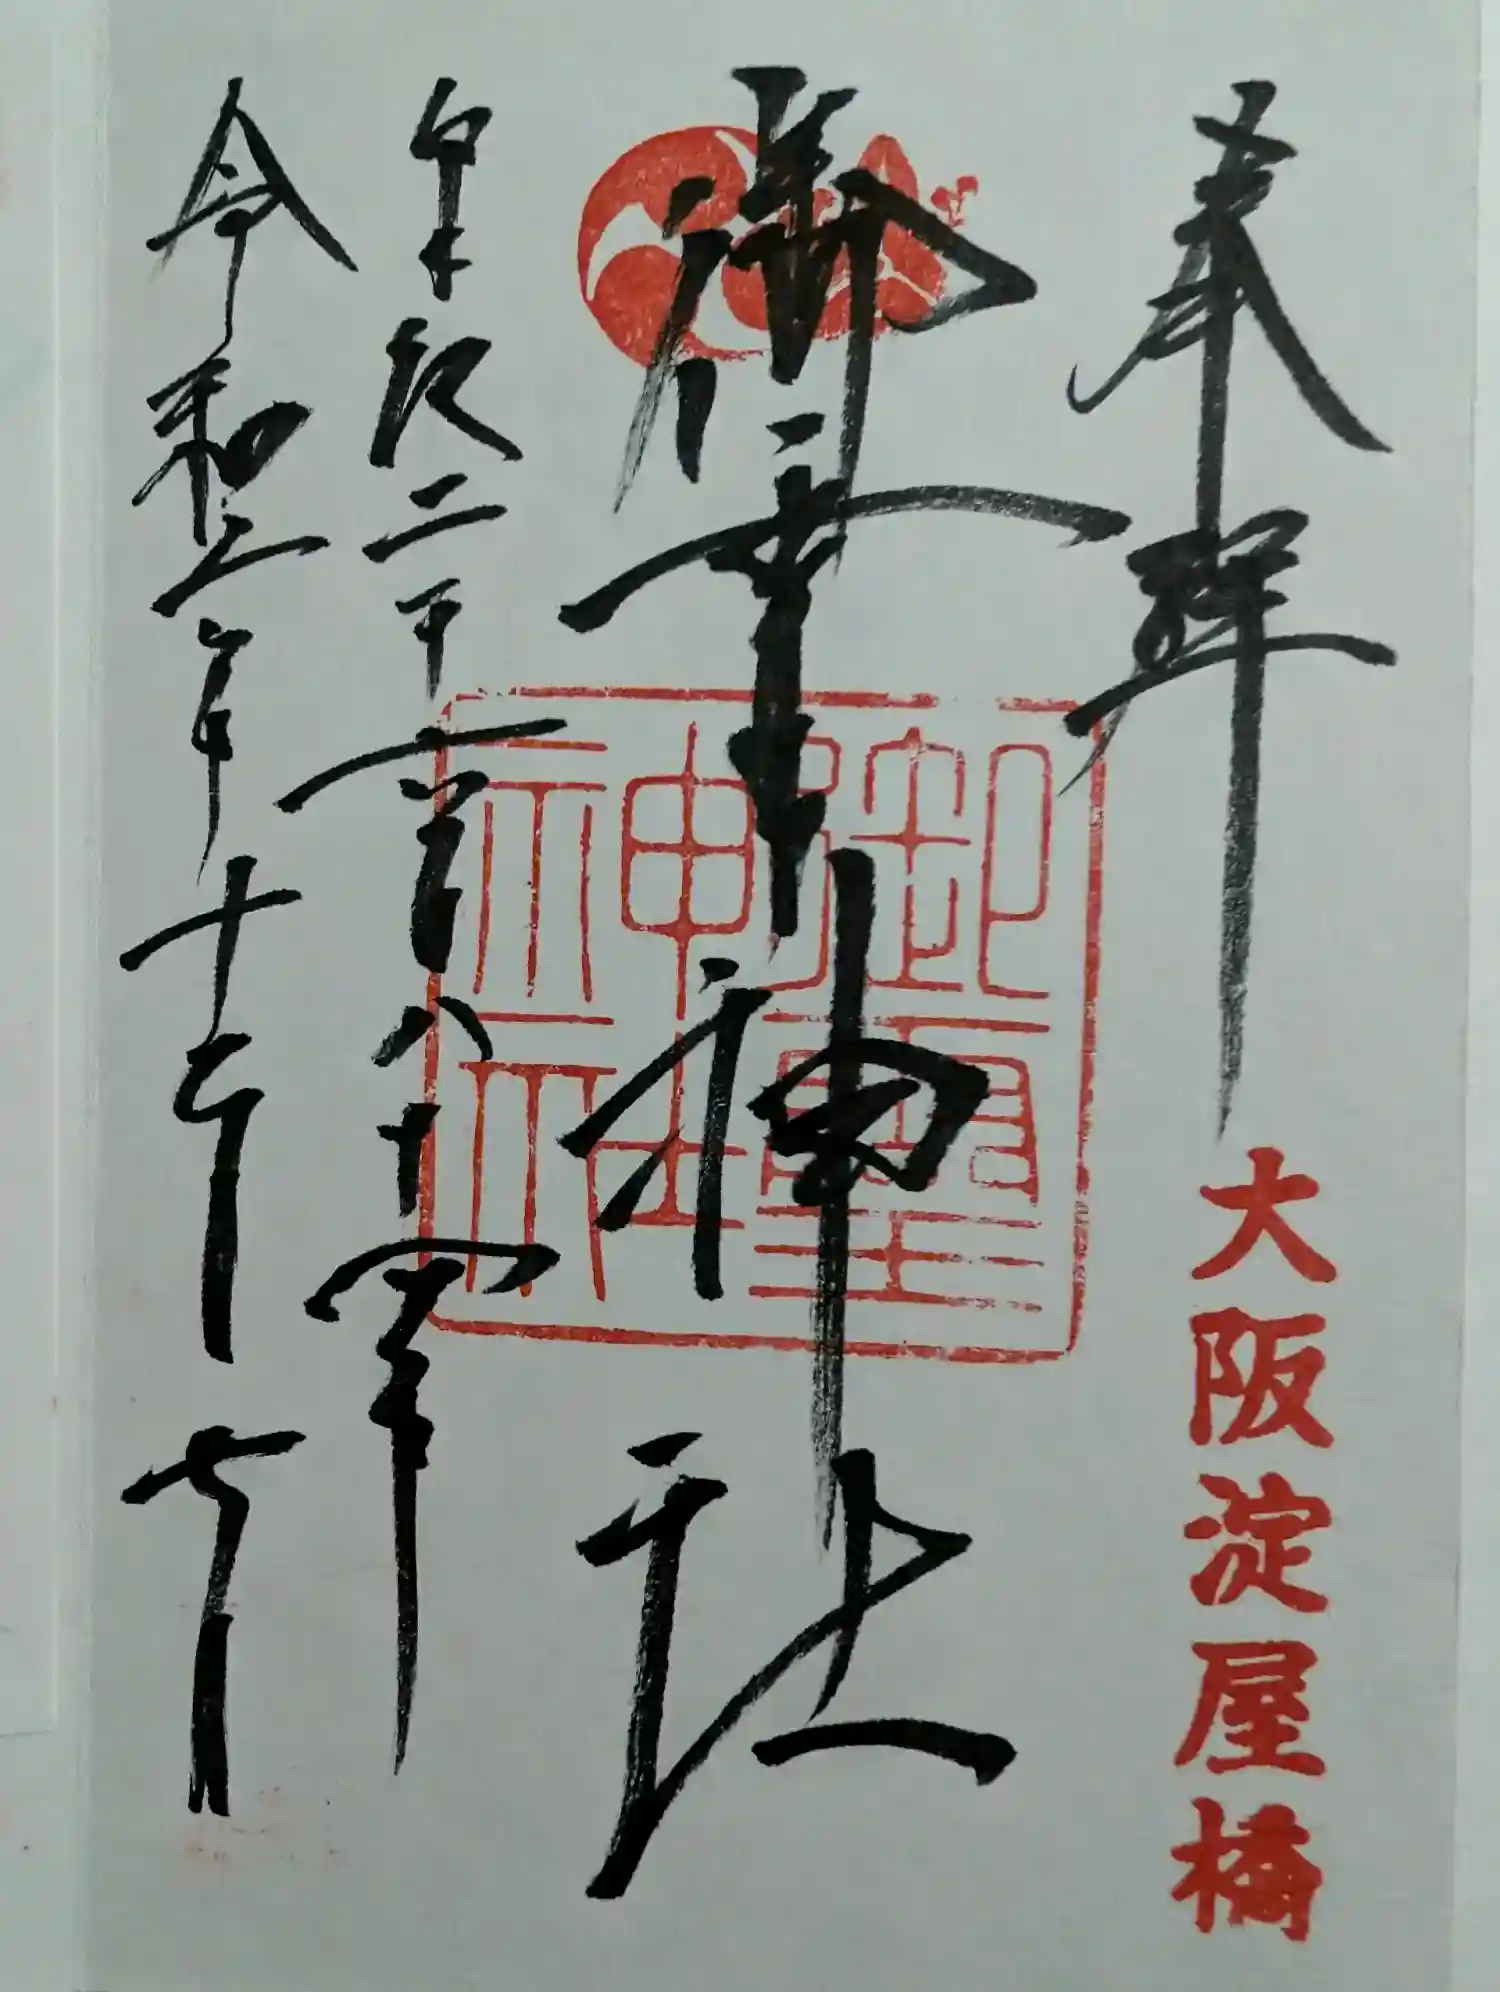 奉拝
大阪淀屋橋
御霊神社
御霊神社
皇紀二千六百八十一年
令和三年十二月七日